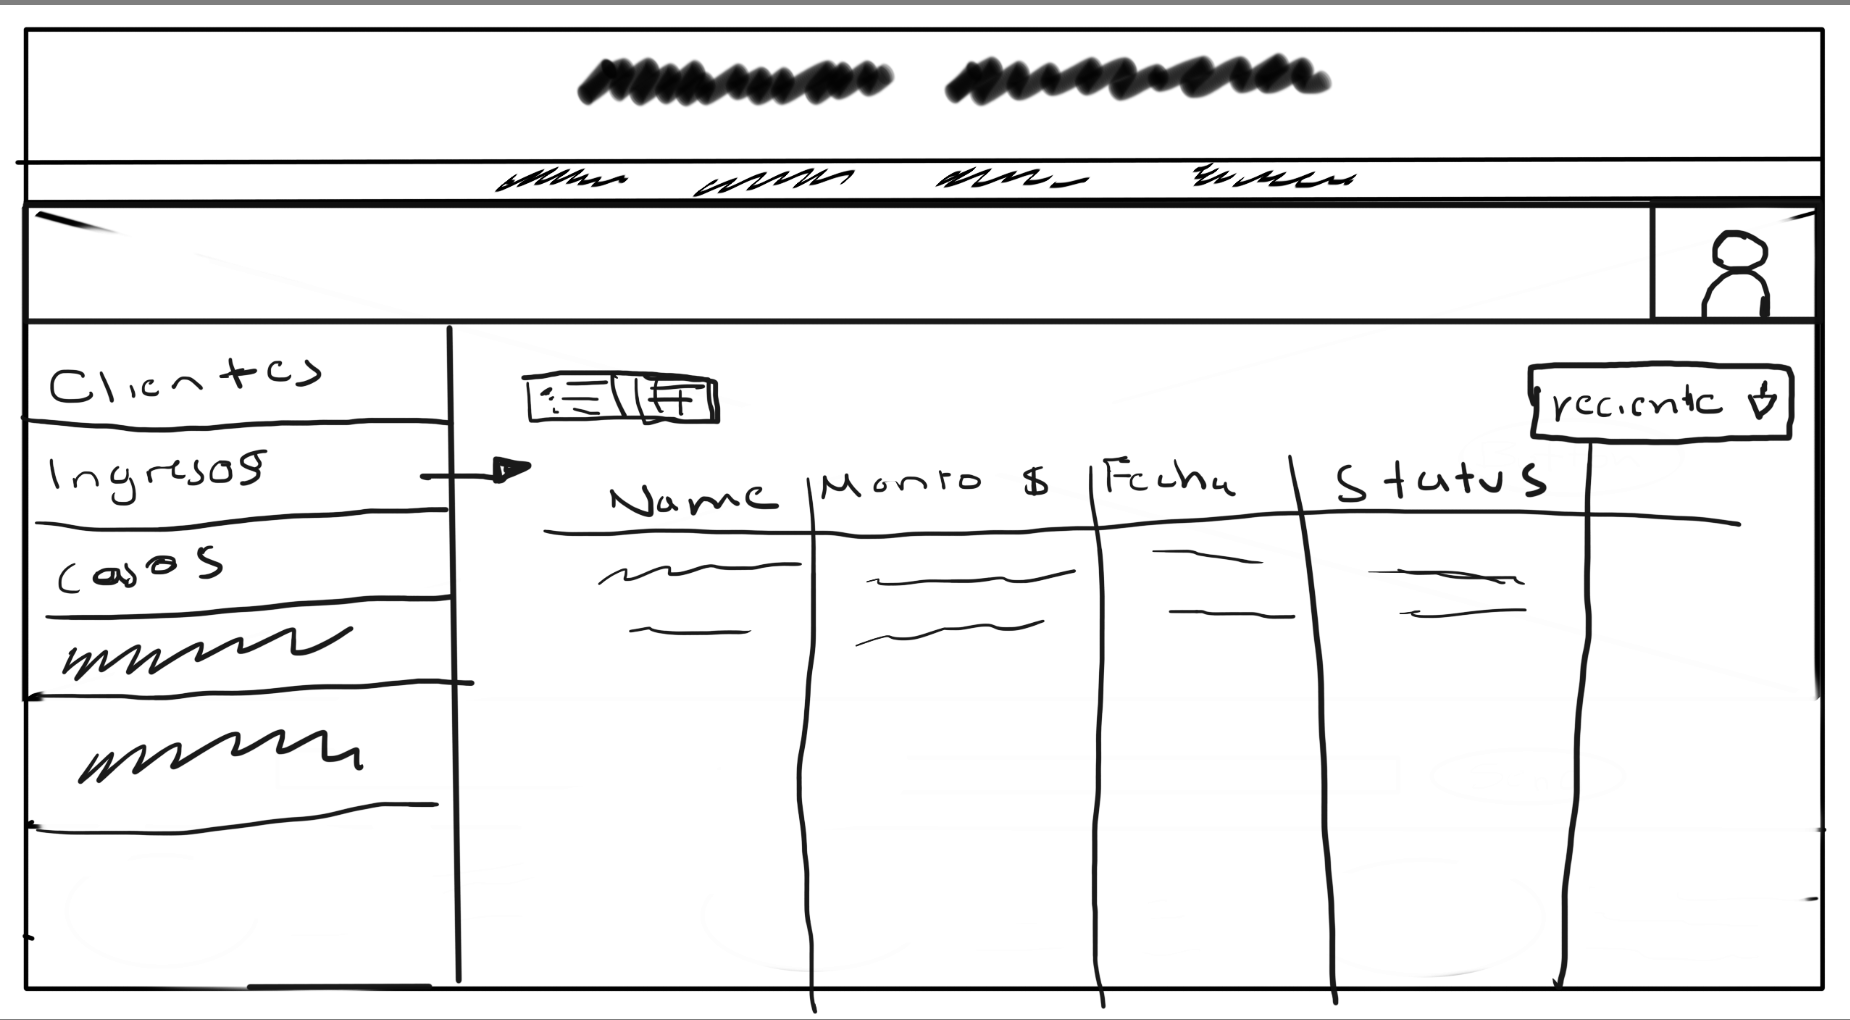 Clientes
Ingresos
casos
reciente
Name Monto $ Fecha Status